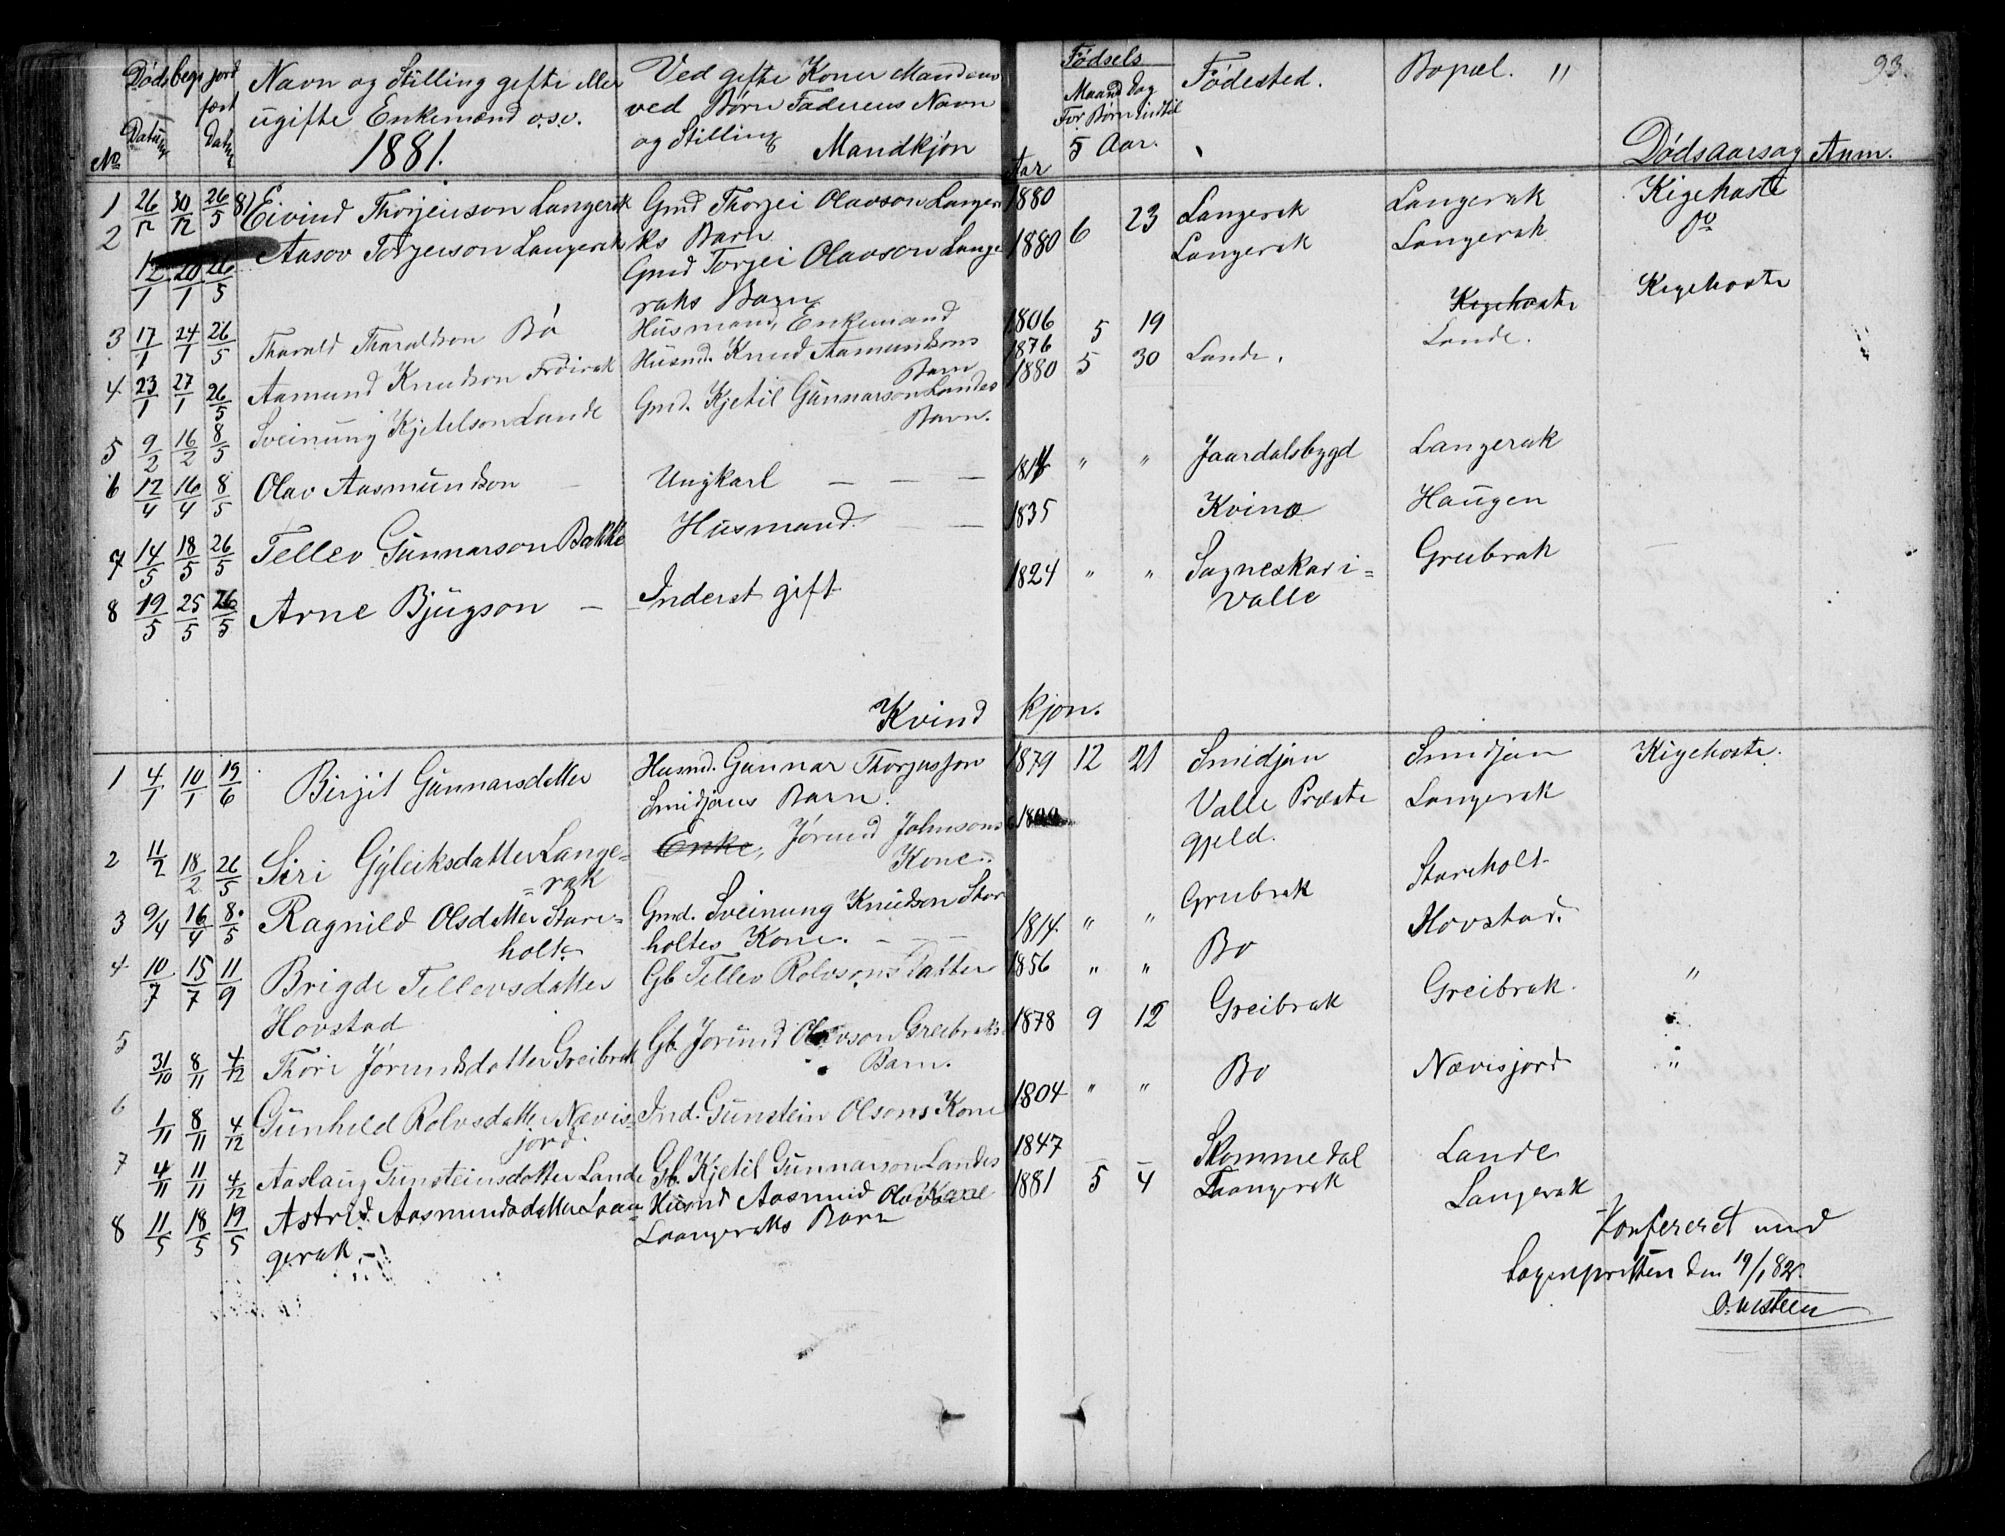 93.
Døds begr jord
fæst
Navn og Stilling gifte eller
ugifte Enkemænd o.s.v.
1881.
Ved gifte Koner Mandens
ved Børn Faderens Navn
og Stilling
Mandkjøn
No
Datum
Datum
Fødsels
Aar
Maaned Dag
For Børn indtil
5 Aar.
Fødested.
Bopæl. "
Dødsaarsag
Anm.
1 26/12 30/12 26/5 81 Eivind Thorjeuson Langerak Gmd Thorjei Olavson Langera 1880 Langerak Langerak Kigehoste
2 12/1 20/1 26/5 Aasov Torjeuson Langerak ks Barn 1880 6 23 Langerak Langerak do
Gmd Torjei Olavson Lange
raks Barn
Kigehoste Kigehoste
3 17/1 24/1 26/5 Tharald Tharaldson Bø Husmand, Enkemand 1806 5 19
4 23/1 27/1 26/5 Aamund Knudson Frøirak Husmd. Knud Aamundsons 1876
Barn
5 9/2 16/2 8/5 Sveinung Kjetelson Lande Gmd. Kjetil Gunnarson Landes 1880 5 30 Lande. Lande.
Barn.
6 12/4 16/4 8/5 Olav Aasmundson Ungkarl — — — 181 " " Jaardalsbygd Langerak
7 14/5 18/5 26/5 Tellev Gunnarson Bakke Husmand — — 1835 Kvina Haugen
8 19/5 25/5 26/5 Arne Bjugson — Inderst gift 1824 " " Sagneskar i= Greibrak
Valle
Kvind kjøn.
1 4/1 10/1 19/6 Birgit Gunnarsdatter Husmd. Gunnar Thorjusson 1879 12 21 Smidjan Smidjan Kigehoste.
Smidjans Barn.
2 11/2 18/2 26/5 Siri Gyleiksdatter Lange= Enke, Jørund Johnsons Valle Præste Langerak
=rak Kone. gjeld.
3 9/4 16/4 8/5 Ragnild Olsdatter Stare= Gmd. Sveinung Knudson Star 1814 " " Grubrak Stareholt
holt holtes Kone. — — —
4 10/7 15/7 11/9 Brigde Tellevsdatter Gb Tellev Rolvsons Datter 1856 " " Bø Hovstad.
Hovstad
5 31/10 8/11 4/12 Thore Jørundsdatter Greibrak Gb. Jørund Olavson Greibraks 1878 9 12 Greibrak Greibrak. "
Barn.
6 1/11 8/11 4/12 Gunhild Rolvsdatter Nævis= Ind. Gunstein Olsons Kone 1804 " " Bø Nævisjord "
jord.
7 4/11 11/11 4/12 Aaslaug Gunsteinsdatter Lande Gb. Kjetil Gunnarson Landes 1847 — — Skommedal Lande
Kone
8 11/5 18/5 19/5 Astrid Aasmundsdatter Laan= Husmd Aasmund Olavson 1881 5 4 Laangerak Langerak
gerak — Laangeraks Barn
Konfereret med
Sogneprotten den 19/1 82.
O. Uksteen